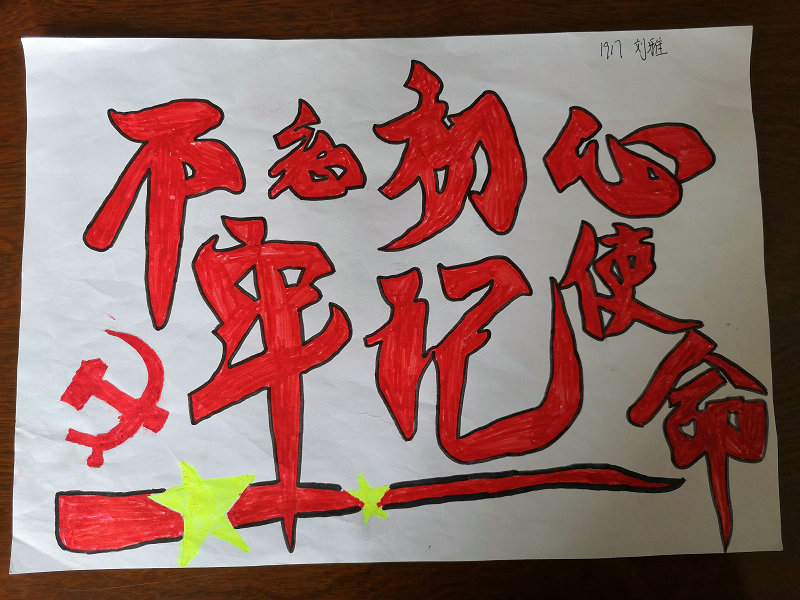 1917 刘雅
不忘初心
牢记使命